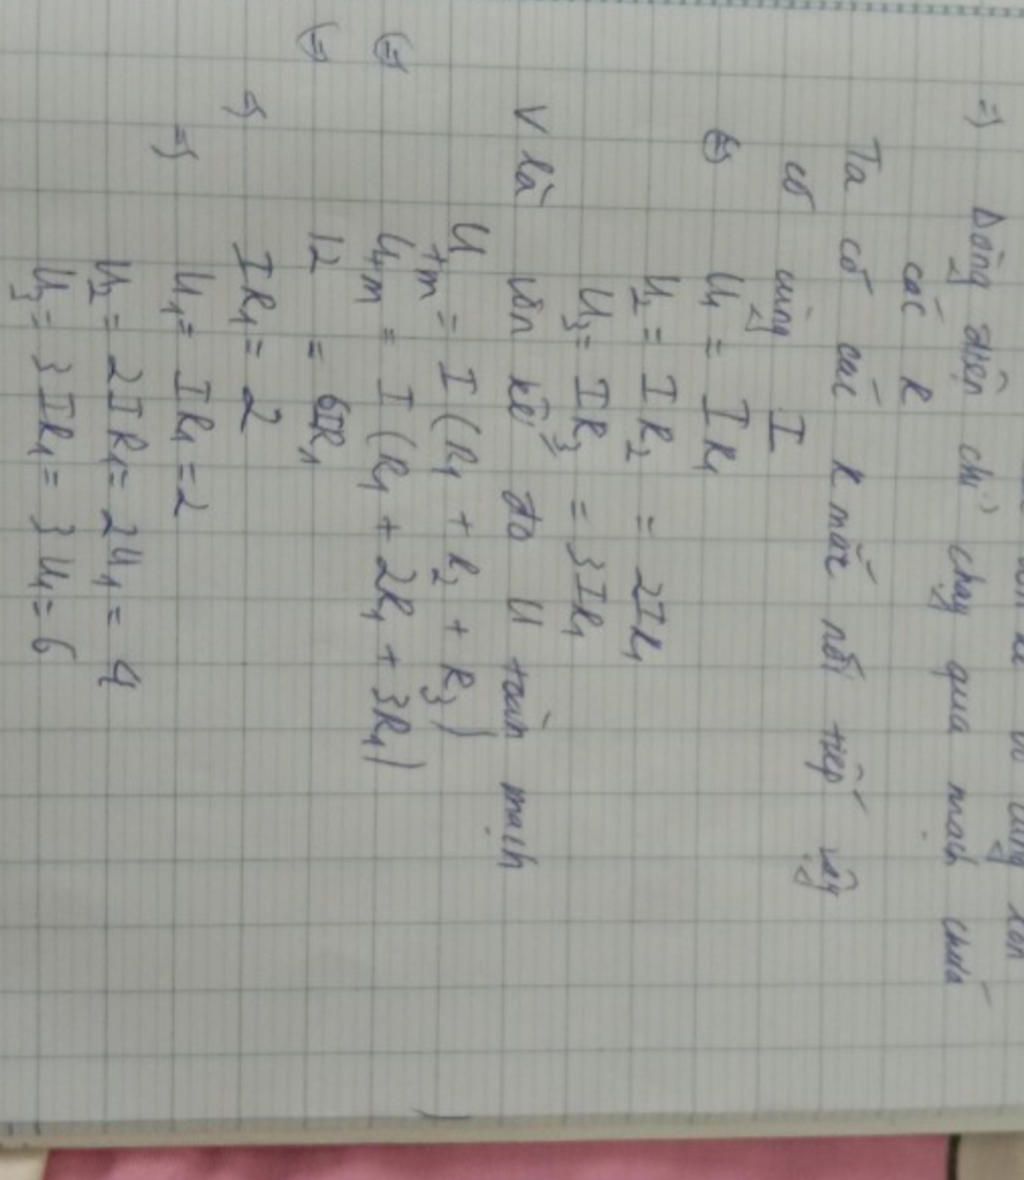 => Dòng điện chỉ chạy qua mạch chứa
các R
Ta có các R mắc nối tiếp vậy
có cùng I
U1 = IR1
U2 = IR2 = 2IR1
U3 = IR3 = 3IR1
V là vôn kế đo U toàn mạch
Utm = I (R1 + R2 + R3)
<=> Utm = I (R1 + 2R1 + 3R1)
<=> 12 = 6IR1
=> IR1 = 2
=> U1 = IR1 = 2
U2 = 2IR1 = 2U1 = 4
U3 = 3IR1 = 3U1 = 6